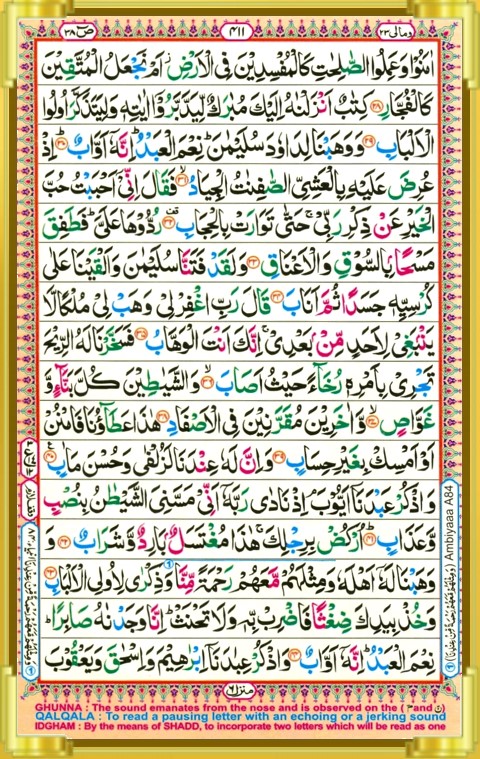 ومالی ٢٣ ٤١١ ص ٣٨
اٰمَنُوْا وَعَمِلُوا الصّٰلِحٰتِ كَالْمُفْسِدِيْنَ فِى الْاَرْضِ اَمْ نَجْعَلُ الْمُتَّقِيْنَ
كَالْفُجَّارِ ﴿٢٨﴾ كِتٰبٌ اَنْزَلْنٰهُ اِلَيْكَ مُبٰرَكٌ لِّيَدَّبَّرُوْۤا اٰيٰتِهٖ وَلِيَتَذَكَّرَ اُولُوا
الْاَلْبَابِ ﴿٢٩﴾ وَوَهَبْنَا لِدَاوٗدَ سُلَيْمٰنَ ؕ نِعْمَ الْعَبْدُ ؕ اِنَّهٗۤ اَوَّابٌ ﴿٣٠﴾ اِذْ
عُرِضَ عَلَيْهِ بِالْعَشِىِّ الصّٰفِنٰتُ الْجِيَادُ ﴿٣١﴾ فَقَالَ اِنِّىْۤ اَحْبَبْتُ حُبَّ
الْخَيْرِ عَنْ ذِكْرِ رَبِّىْ ۚ حَتّٰى تَوَارَتْ بِالْحِجَابِ ﴿٣٢﴾ رُدُّوْهَا عَلَىَّ ؕ فَطَفِقَ
مَسْحًۢا بِالسُّوْقِ وَالْاَعْنَاقِ ﴿٣٣﴾ وَلَقَدْ فَتَنَّا سُلَيْمٰنَ وَاَلْقَيْنَا عَلٰى
كُرْسِيِّهٖ جَسَدًا ثُمَّ اَنَابَ ﴿٣٤﴾ قَالَ رَبِّ اغْفِرْ لِىْ وَهَبْ لِىْ مُلْكًا لَّا
يَنْۢبَغِىْ لِاَحَدٍ مِّنْۢ بَعْدِىْ ۚ اِنَّكَ اَنْتَ الْوَهَّابُ ﴿٣٥﴾ فَسَخَّرْنَا لَهُ الرِّيْحَ
تَجْرِىْ بِاَمْرِهٖ رُخَآءً حَيْثُ اَصَابَ ﴿٣٦﴾ وَالشَّيٰطِيْنَ كُلَّ بَنَّآءٍ وَّ
غَوَّاصٍ ﴿٣٧﴾ وَّاٰخَرِيْنَ مُقَرَّنِيْنَ فِى الْاَصْفَادِ ﴿٣٨﴾ هٰذَا عَطَآؤُنَا فَامْنُنْ
اَوْ اَمْسِكْ بِغَيْرِ حِسَابٍ ﴿٣٩﴾ وَاِنَّ لَهٗ عِنْدَنَا لَزُلْفٰى وَحُسْنَ مَاٰبٍ ﴿٤٠﴾
وَاذْكُرْ عَبْدَنَاۤ اَيُّوْبَ ۘ اِذْ نَادٰى رَبَّهٗۤ اَنِّىْ مَسَّنِىَ الشَّيْطٰنُ بِنُصْبٍ
وَّعَذَابٍ ﴿٤١﴾ اُرْكُضْ بِرِجْلِكَ ۚ هٰذَا مُغْتَسَلٌۢ بَارِدٌ وَّشَرَابٌ ﴿٤٢﴾ وَ
وَهَبْنَا لَهٗۤ اَهْلَهٗ وَمِثْلَهُمْ مَّعَهُمْ رَحْمَةً مِّنَّا وَذِكْرٰى لِاُولِى الْاَلْبَابِ ﴿٤٣﴾
وَخُذْ بِيَدِكَ ضِغْثًا فَاضْرِبْ بِّهٖ وَلَا تَحْنَثْ ؕ اِنَّا وَجَدْنٰهُ صَابِرًا ؕ
نِعْمَ الْعَبْدُ ؕ اِنَّهٗۤ اَوَّابٌ ﴿٤٤﴾ وَاذْكُرْ عِبٰدَنَاۤ اِبْرٰهِيْمَ وَاِسْحٰقَ وَيَعْقُوْبَ
Ambiyaaa A84
منزل ٦
GHUNNA : The sound emanates from the nose and is observed on the ( م and ن )
QALQALA : To read a pausing letter with an echoing or a jerking sound
IDGHAM : By the means of SHADD, to incorporate two letters which will be read as one